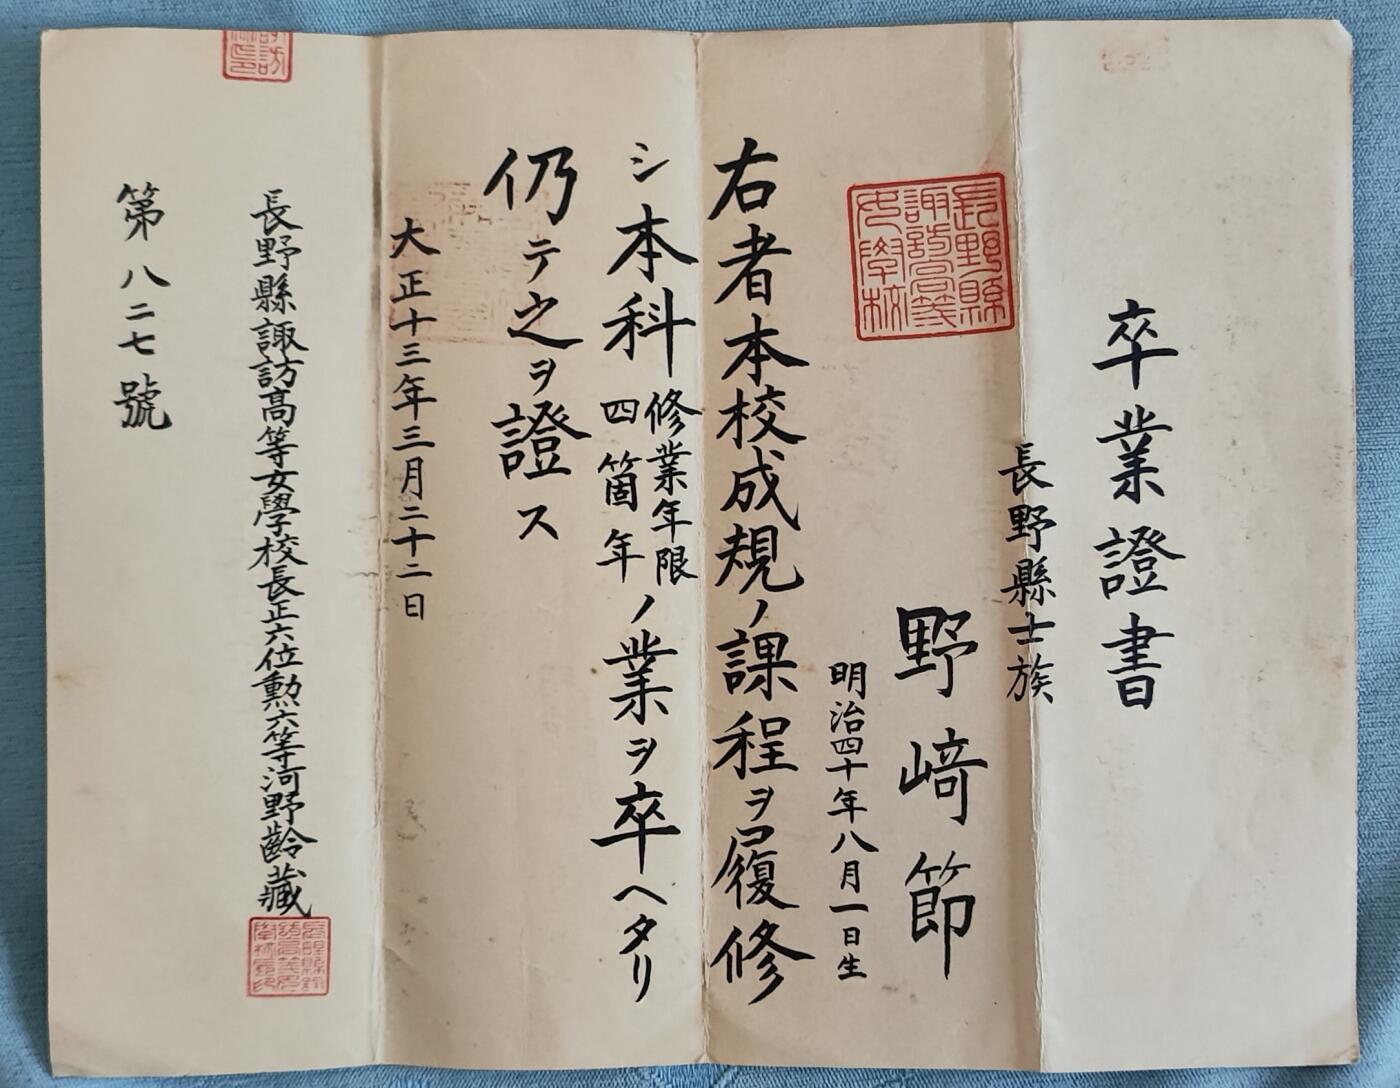 卒業證書
長野縣士族
野﨑節
明治四十年八月一日生
右者本校成規ノ課程ヲ履修
シ本科修業年限四箇年ノ業ヲ卒ヘタリ
仍テ之ヲ證ス
大正十三年三月二十二日
長野縣諏訪高等女學校長正六位勲六等河野齡藏
第八二七號